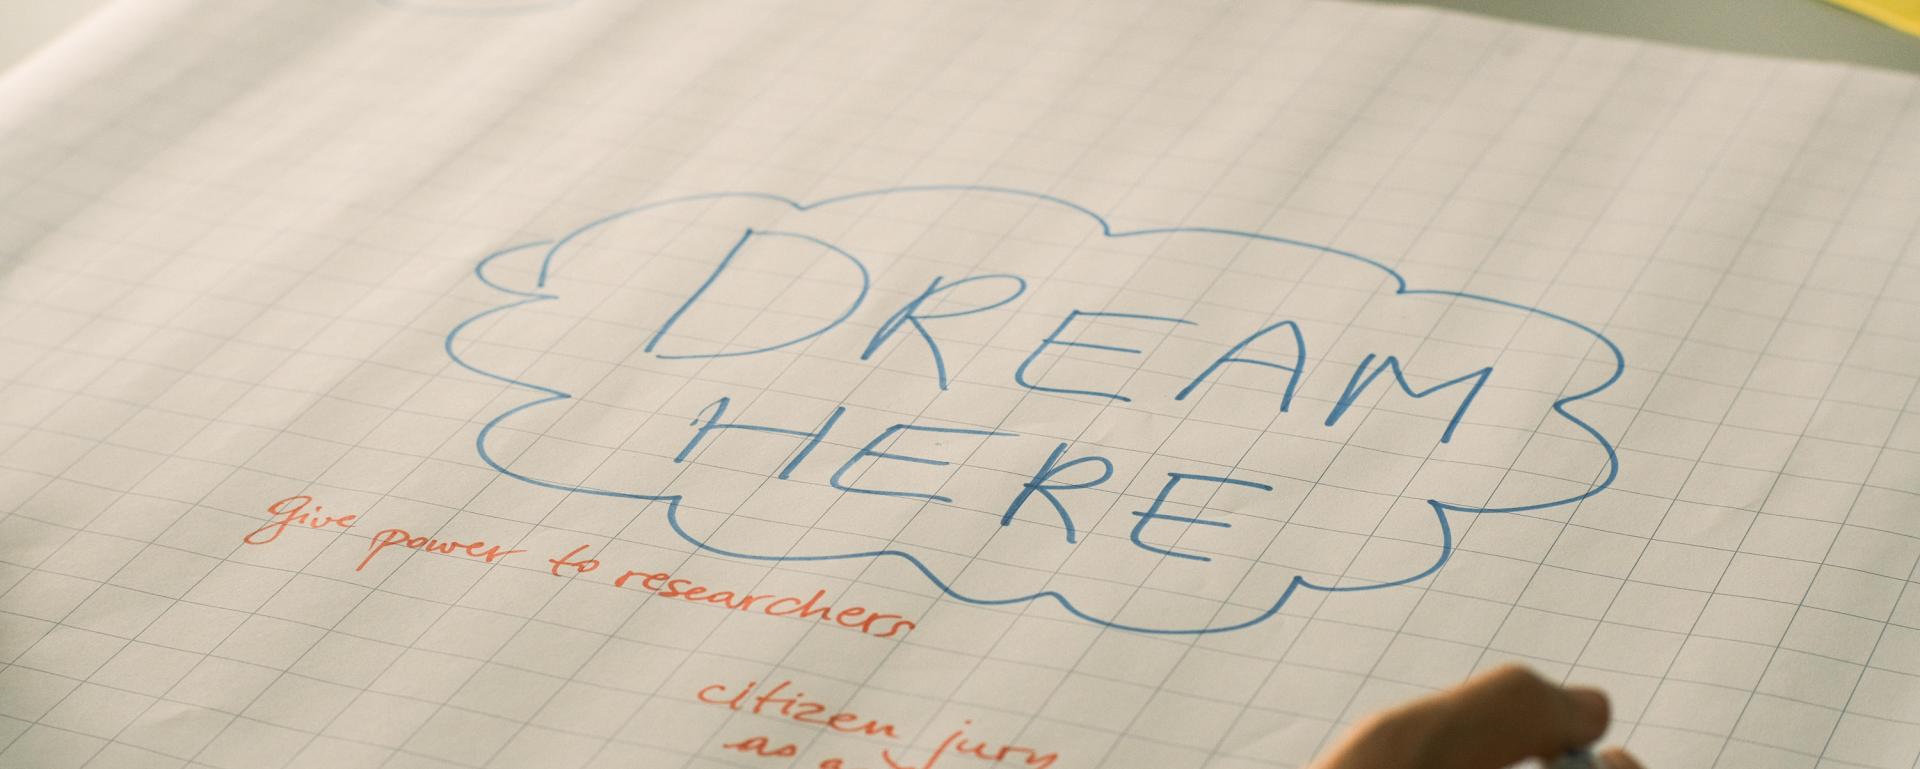 DREAM
HERE
Give power to researchers
citizen jury
as a